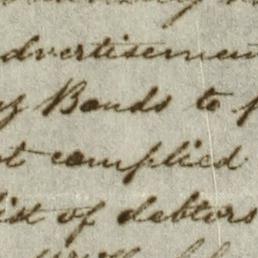 advertisemen
Bonds to
complied
list of debtors